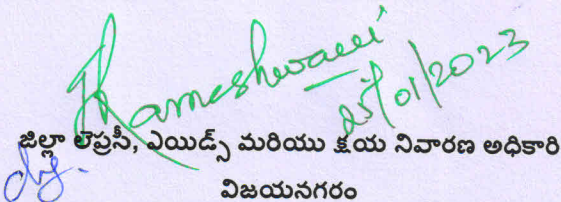 Rameshwari
25/01/2023
జిల్లా లెప్రసీ, ఎయిడ్స్ మరియు క్షయ నివారణ అధికారి
విజయనగరం